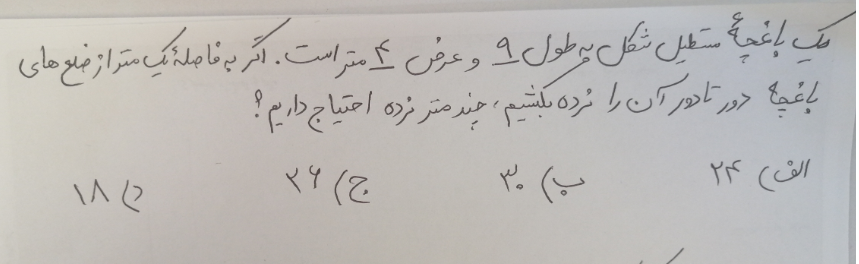 یک باغچهٔ مستطیل شکل به طول ۹ و عرض ۴ متر است. اگر به فاصلهٔ یک متر از ضلع های
باغچه دور تا دور آن را نرده بکشیم، چند متر نرده احتیاج داریم؟
الف) ۲۴ ب) ۳۰ ج) ۲۶ د) ۱۸